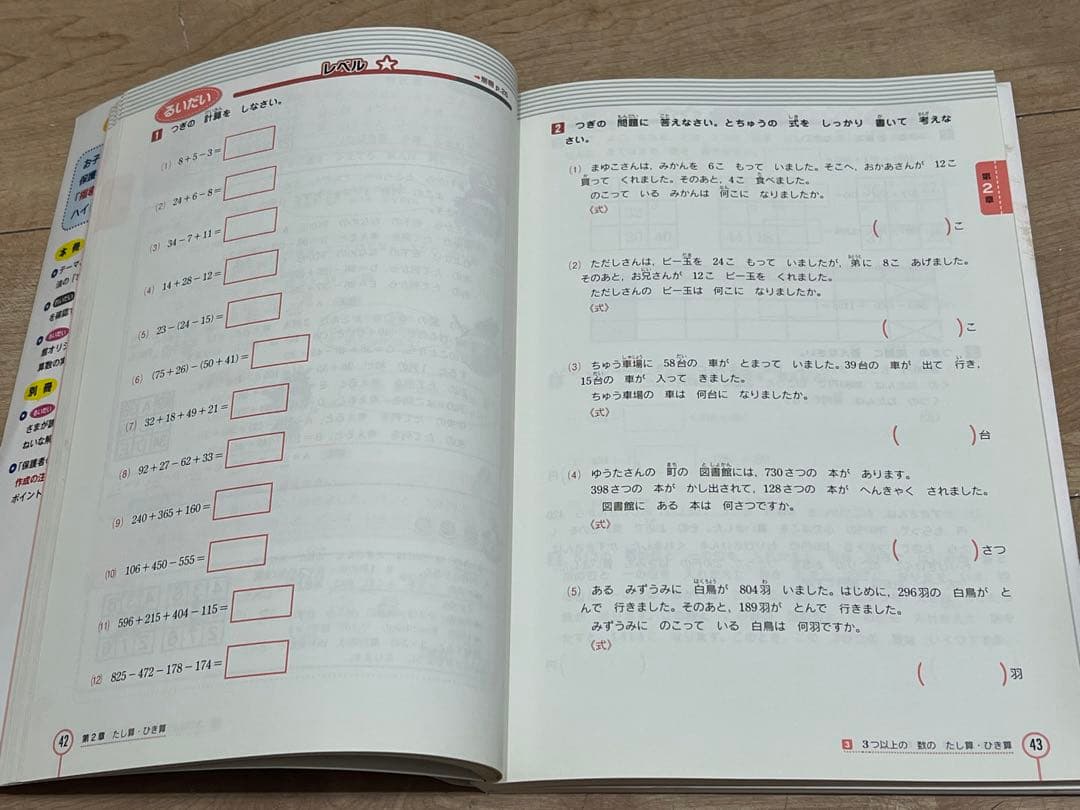 レベル ☆
るいだい
→別冊 p.26
1 つぎの 計算を しなさい。
(1) 8+5−3=
(2) 24+6−8=
(3) 34−7+11=
(4) 14+28−12=
(5) 23−(24−15)=
(6) (75+26)−(50+41)=
(7) 32+18+49+21=
(8) 92+27−62+33=
(9) 240+365+160=
(10) 106+450−555=
(11) 596+215+404−115=
(12) 825−472−178−174=
42 第2章 たし算・ひき算
お子
保護
「指導
ハイ
本冊
テーマ
法の「
るいだい
を確認
るいだい
館オリジ
算数の実
別冊
るいだい
さまが誤
ねいな解
「保護者
作成の注
ポイント
2 つぎの 問題に 答えなさい。とちゅうの 式を しっかり 書いて 考えな
さい。
(1) まゆこさんは，みかんを 6こ もって いました。そこへ，おかあさんが 12こ
買って くれました。そのあと，4こ 食べました。
のこって いる みかんは 何こに なりましたか。
〈式〉
( )こ
(2) ただしさんは，ビー玉を 24こ もって いましたが，弟に 8こ あげました。
そのあと，お兄さんが 12こ ビー玉を くれました。
ただしさんの ビー玉は 何こに なりましたか。
〈式〉
( )こ
(3) ちゅう車場に 58台の 車が とまって いました。39台の 車が 出て 行き，
15台の 車が 入って きました。
ちゅう車場の 車は 何台に なりましたか。
〈式〉
( )台
(4) ゆうたさんの 町の 図書館には，730さつの 本が あります。
398さつの 本が かし出されて，128さつの 本が へんきゃく されました。
図書館に ある 本は 何さつですか。
〈式〉
( )さつ
(5) ある みずうみに 白鳥が 804羽 いました。はじめに，296羽の 白鳥が と
んで 行きました。そのあと，189羽が とんで 行きました。
みずうみに のこって いる 白鳥は 何羽ですか。
〈式〉
( )羽
第2章
3 3つ以上の 数の たし算・ひき算 43